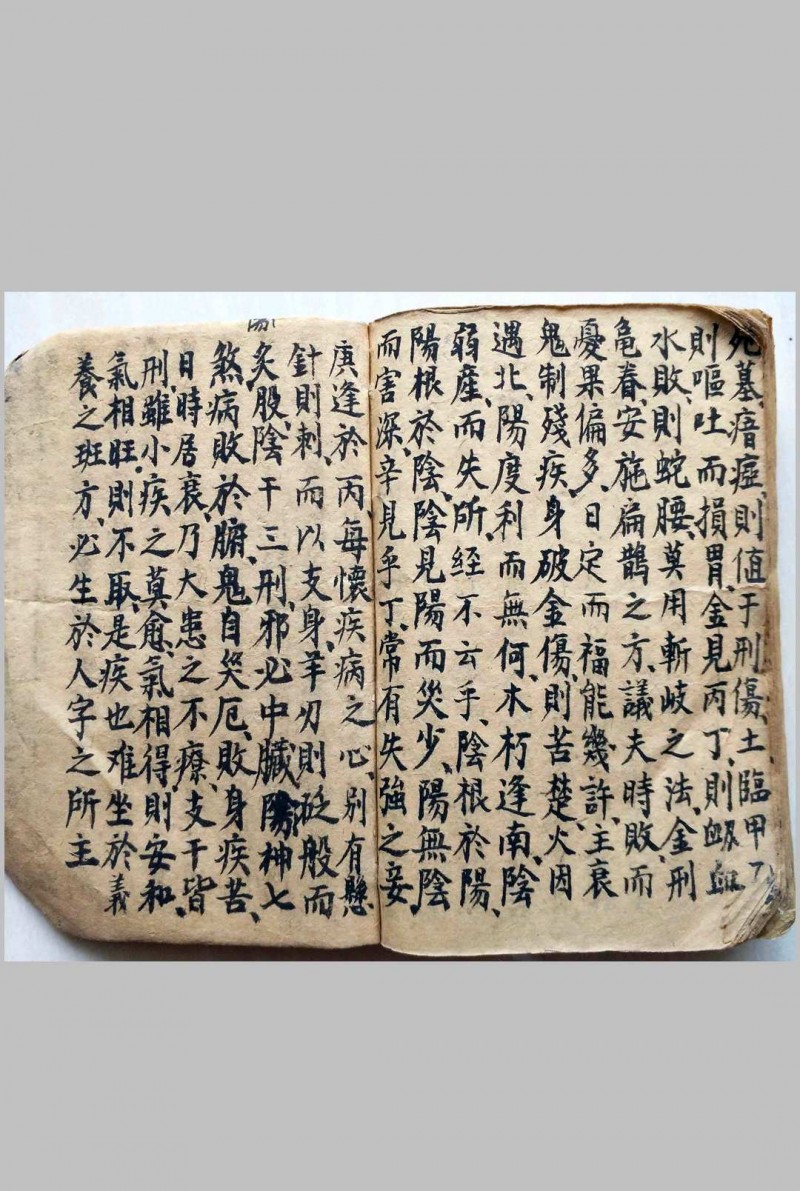 死墓、瘖瘂、則值于刑傷、土臨甲乙
則嘔吐而損胃、金見丙丁、則衂血
水敗、則蛇腰、莫用斬岐之法、金刑
龜脊、安施扁鵲之方、議夫時敗、而
憂果偏多、日定而福能幾許、主衰
鬼制殘疾、身破金傷、則苦楚、火因
遇北、陽度利而無何、木朽逢南、陰
弱產、而失所、経不云乎、陰根於陽、
陽根於陰、陰見陽而災少、陽無陰
而害深、辛見乎丁、常有失強之妾、
庚逢於丙、每懷疾病之心、別有懸
針則刺、而以支身、羊刃則砭般而
炙股、陰干三刑、邪必中臟、陽神七
煞、病敗於腑、鬼自災厄、敗身疾苦、
日時居衰、乃大患之不療、支干皆
刑、雖小疾之莫愈、氣相得、則安和、
氣相旺、則不取、是疾也难坐於義
養之班方、必生於人字之所主
陽